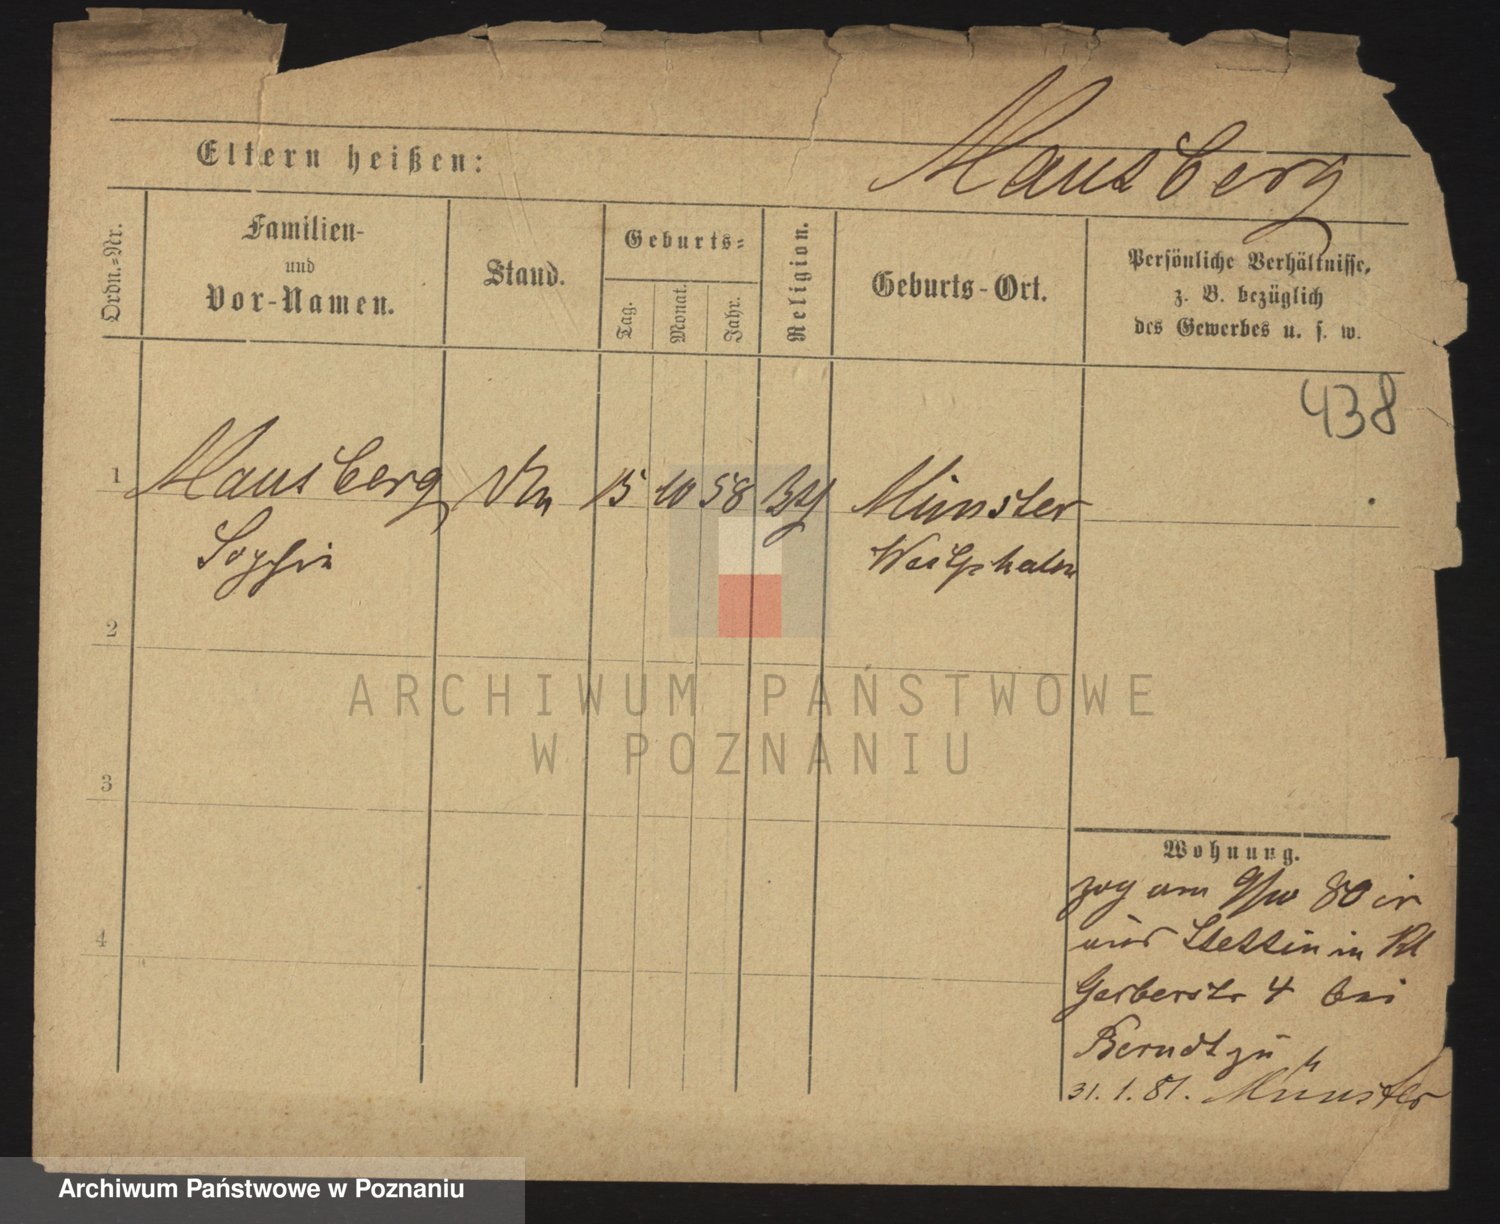 Mausberg
Eltern heißen:
Ordn.=Nr.
Familien-
und
Vor-Namen.
Stand.
Geburts=
Tag.
Monat.
Jahr.
Religion.
Geburts-Ort.
Persönliche Verhältnisse,
z. B. bezüglich
des Gewerbes u. s. w.
438
1
Mausberg
15 10 58
Münster
Sophie
Westphalen
2
ARCHIWUM PAŃSTWOWE
W POZNANIU
3
4
Wohnung.
zog am 80
aus Stettin in
Gerberstr 4 bei
Berndt zu
31. 1. 81. Münster
Archiwum Państwowe w Poznaniu